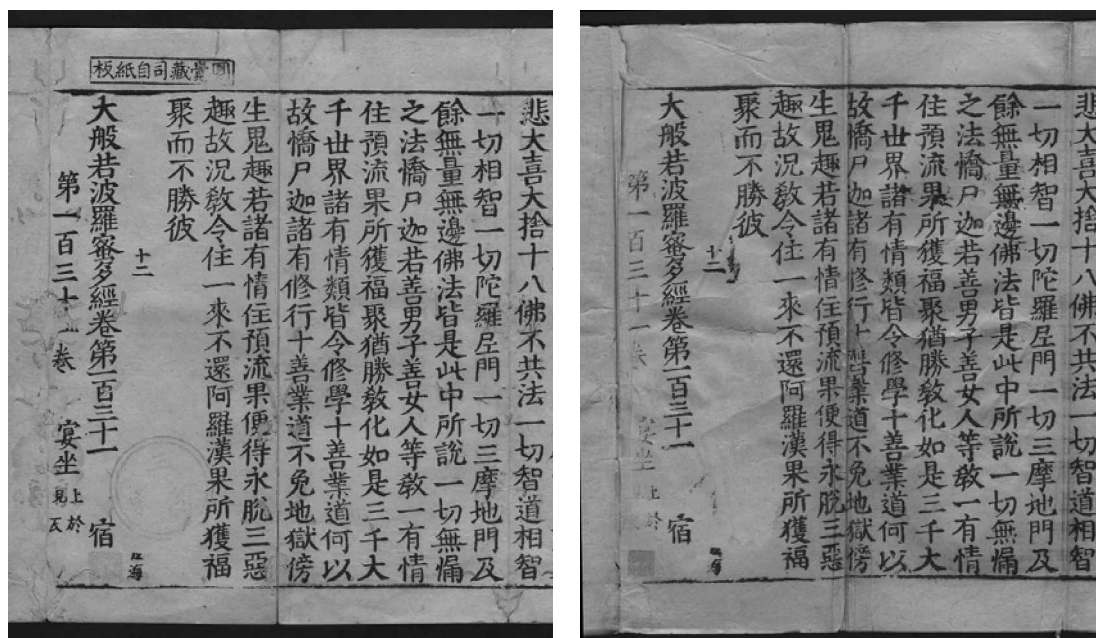 圓覺藏司自紙板
悲大喜大捨十八佛不共法一切智道相智
一切相智一切陀羅尼門一切三摩地門及
餘無量無邊佛法皆是此中所說一切無漏
之法憍尸迦若善男子善女人等教一有情
住預流果所獲福聚猶勝教化如是三千大
千世界諸有情類皆令修學十善業道何以
故憍尸迦諸有修行十善業道不免地獄傍
生鬼趣若諸有情住預流果便得永脫三惡
趣故況教令住一來不還阿羅漢果所獲福
聚而不勝彼
十二
大般若波羅蜜多經卷第一百三十一 宿
第一百三十 卷 宴坐 上於見
悲大喜大捨十八佛不共法一切智道相智
一切相智一切陀羅尼門一切三摩地門及
餘無量無邊佛法皆是此中所說一切無漏
之法憍尸迦若善男子善女人等教一有情
住預流果所獲福聚猶勝教化如是三千大
千世界諸有情類皆令修學十善業道何以
故憍尸迦諸有修行十善業道不免地獄傍
生鬼趣若諸有情住預流果便得永脫三惡
趣故況教令住一來不還阿羅漢果所獲福
聚而不勝彼
十二
大般若波羅蜜多經卷第一百三十一 宿
第一百三十一卷 宴坐 上於